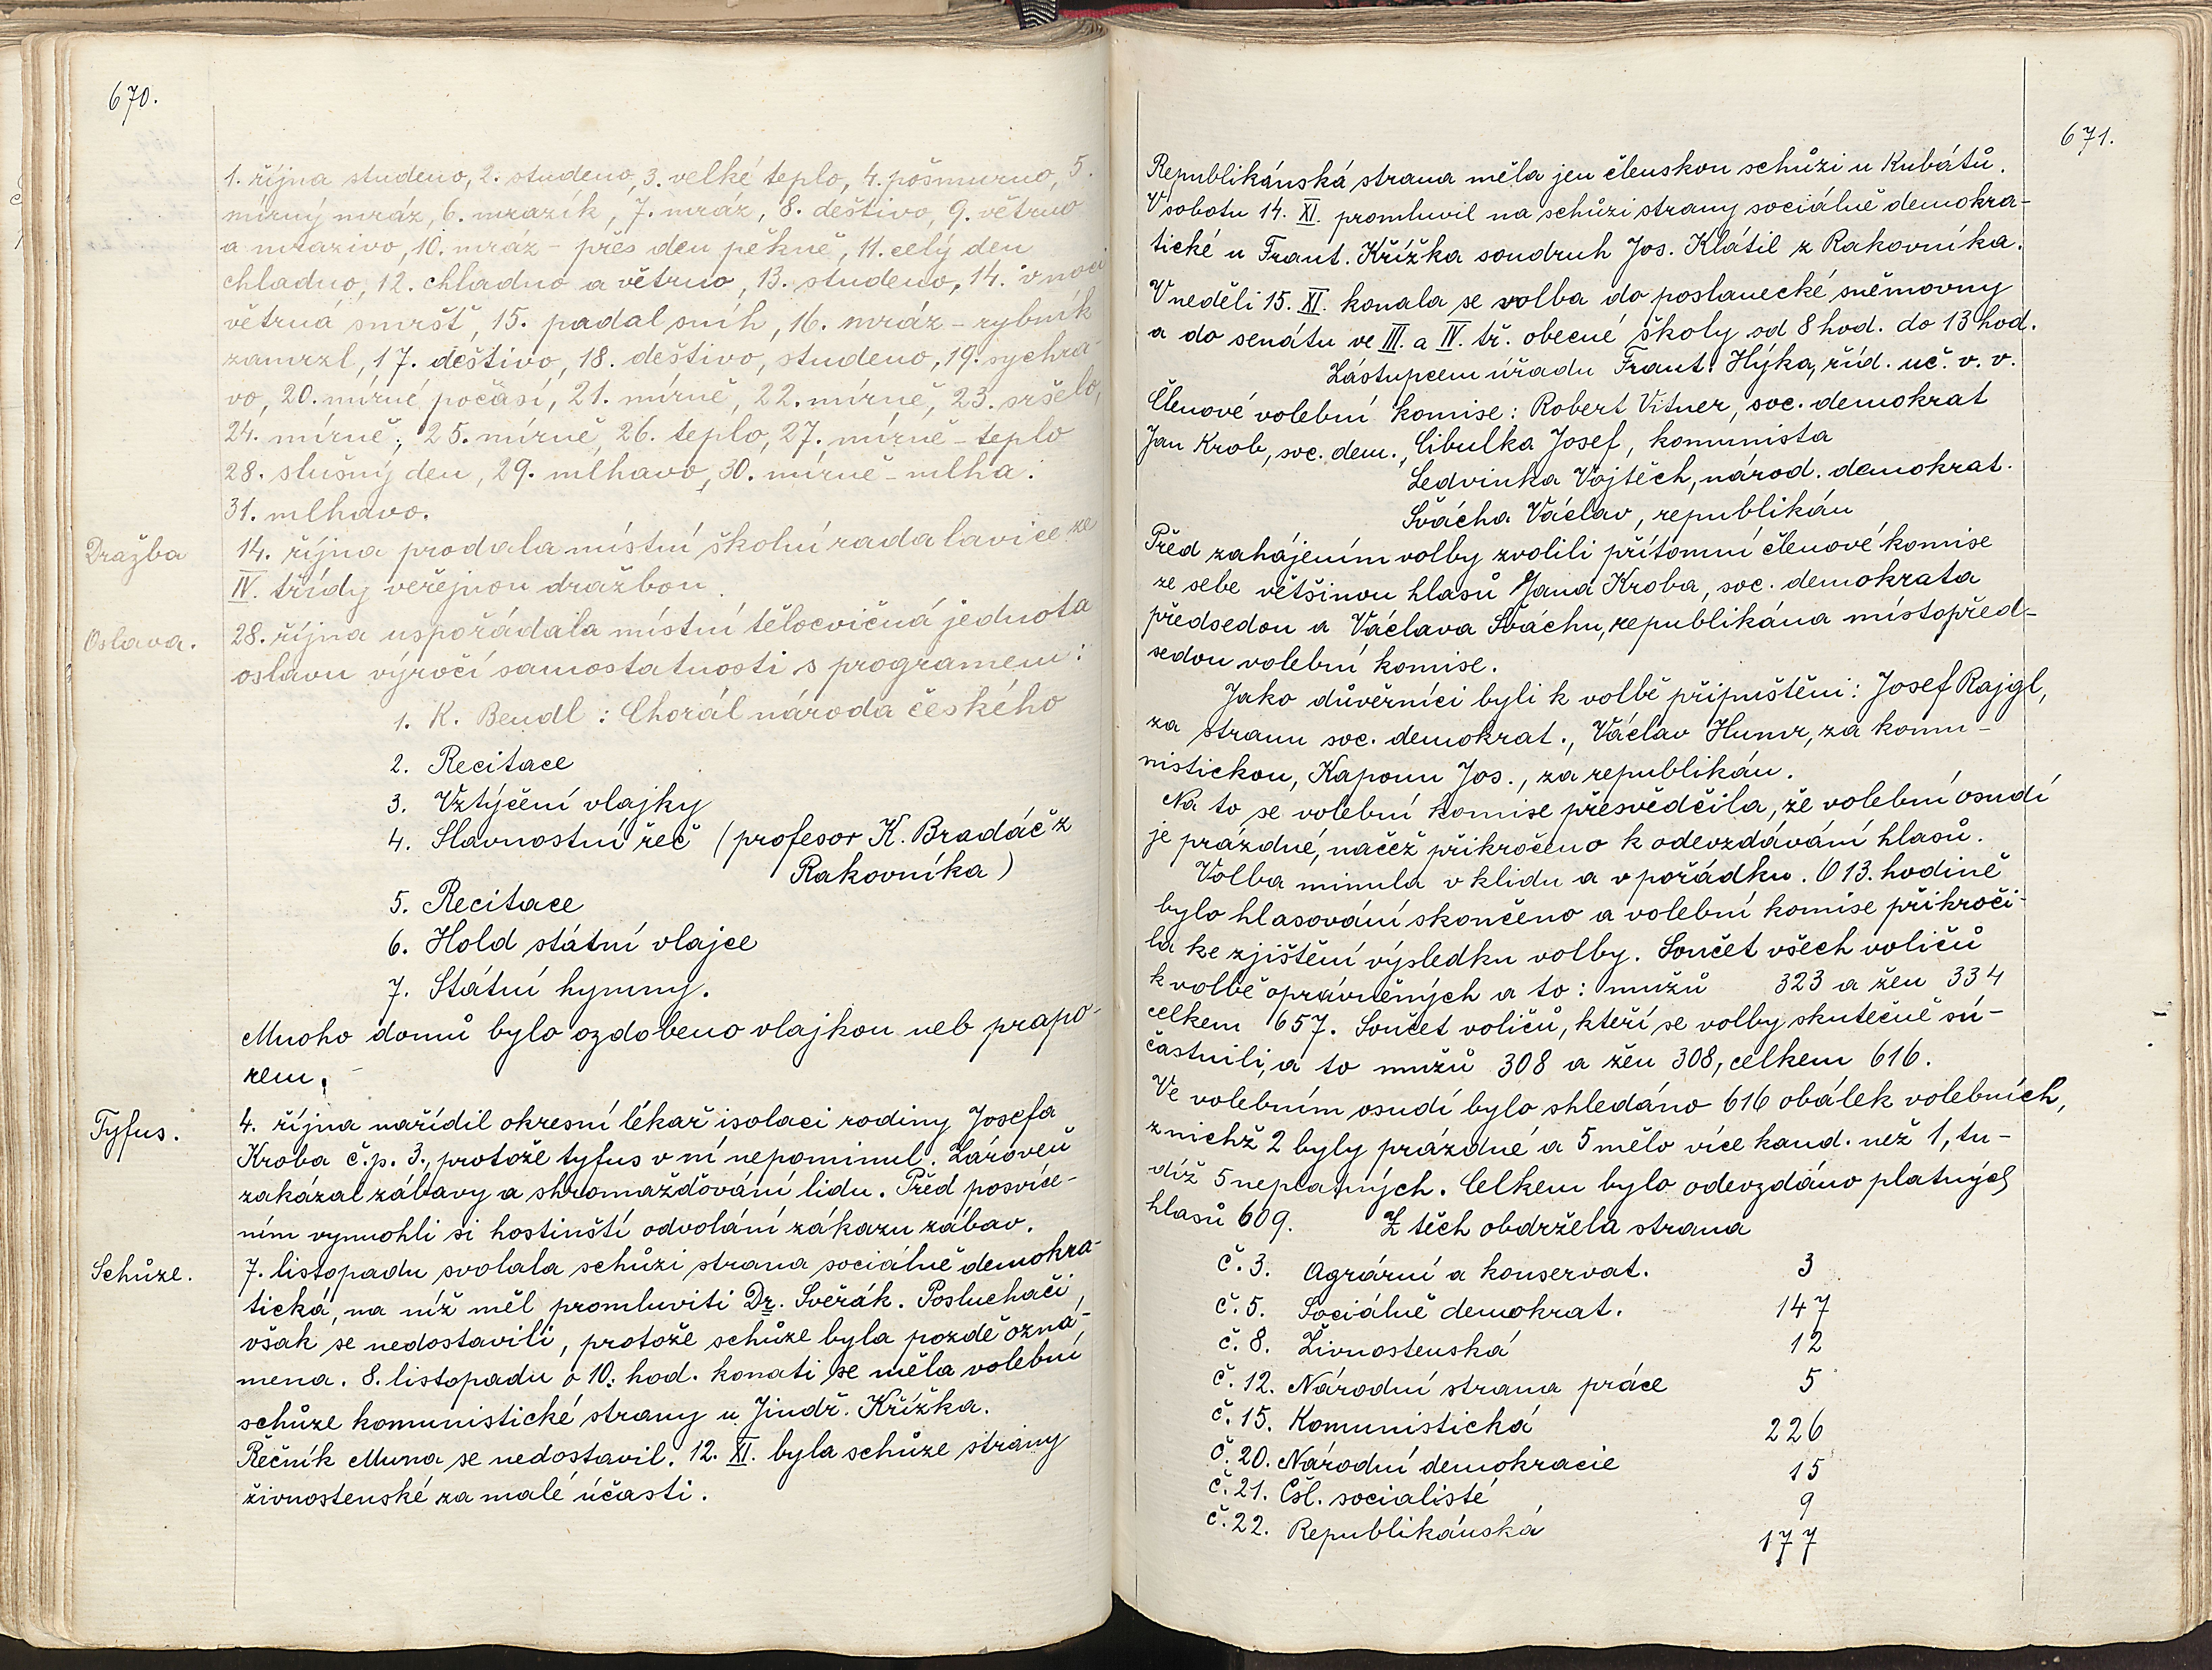 670.
1. října studeno, 2. studeno, 3. velké teplo, 4. pošmurno, 5.
mírný mráz, 6. mrazík, 7. mráz, 8. deštivo, 9. větrno
a mrazivo, 10. mráz - přes den pěkně, 11. celý den
chladno, 12. chladno a větrno, 13. studeno, 14. v noci
větrná smršť, 15. padal sníh, 16. mráz - rybník
zamrzl, 17. deštivo, 18. deštivo, studeno, 19. sychra-
vo, 20. mírné počasí, 21. mírně, 22. mírně, 23. sršelo,
24. mírně, 25. mírně, 26. teplo, 27. mírně - teplo
28. slušný den, 29. mlhavo, 30. mírně - mlha.
31. mlhavo.
Dražba
14. října prodala místní školní rada lavice ze
IV. třídy veřejnou dražbou.
Oslava.
28. října uspořádala místní tělocvičná jednota
oslavu výročí samostatnosti s programem:
1. K. Bendl: Chorál národa českého
2. Recitace
3. Vztýčení vlajky
4. Slavnostní řeč (profesor K. Bradáč z
Rakovníka)
5. Recitace
6. Hold státní vlajce
7. Státní hymny.
Mnoho domů bylo ozdobeno vlajkou neb prapo-
rem.
Tyfus.
4. října nařídil okresní lékař isolaci rodiny Josefa
Kroba č.p. 3., protože tyfus v ní nepominul. Zároveň
zakázal zábavy a shromažďování lidu. Před posvíce-
ním vymohli si hostinští odvolání zákazu zábav.
Schůze.
7. listopadu svolala schůzi strana sociálně demokra-
tická, na níž měl promluviti Dr. Svěrák. Posluchači,
však se nedostavili, protože schůze byla pozdě ozná-
mena. 8. listopadu o 10. hod. konati se měla volební
schůze komunistické strany u Jindř. Křížka.
Řečník Muna se nedostavil. 12. XI. byla schůze strany
živnostenské za malé účasti.
671.
Republikánská strana měla jen členskou schůzi u Kubátů.
V sobotu 14. XI. promluvil na schůzi strany sociálně demokra-
tické u Frant. Křížka soudruh Jos. Klátil z Rakovníka.
V neděli 15. XI. konala se volba do poslanecké sněmovny
a do senátu ve III. a IV. tř. obecné školy od 8 hod. do 13 hod.
Zástupcem úřadu Frant. Hýka, říd. uč. v. v.
Členové volební komise: Robert Vitner, soc. demokrat
Jan Krob, soc. dem., Cibulka Josef, komunista
Ledvinka Vojtěch, národ. demokrat.
Švácha Václav, republikán
Před zahájením volby zvolili přítomní členové komise
ze sebe většinou hlasů Jana Kroba, soc. demokrata
předsedou a Václava Šváchu, republikána místopřed-
sedou volební komise.
Jako důvěrníci byli k volbě připuštěni: Josef Rajgl,
za stranu soc. demokrat., Václav Humr, za komu-
nistickou, Kapoun Jos., za republikán.
Na to se volební komise přesvědčila, že volební osudí
je prázdné, načež přikročeno k odevzdávání hlasů.
Volba minula v klidu a v pořádku. O 13. hodině
bylo hlasování skončeno a volební komise přikroči-
la ke zjištění výsledku volby. Součet všech voličů
k volbě oprávněných a to: mužů 323 a žen 334
celkem 657. Součet voličů, kteří se volby skutečně sú-
častnili, a to mužů 308 a žen 308, celkem 616.
Ve volebním osudí bylo shledáno 616 obálek volebních,
z nichž 2 byly prázdné a 5 mělo více kand. než 1, tu-
díž 5 neplatných. Celkem bylo odevzdáno platných
hlasů 609. Z těch obdržela strana
č. 3. Agrární a konservat. 3
č. 5. Sociálně demokrat. 147
č. 8. Živnostenská 12
č. 12. Národní strana práce 5
č. 15. Komunistická 226
č. 20. Národní demokracie 15
č. 21. Čsl. socialisté 9
č. 22. Republikánská 177